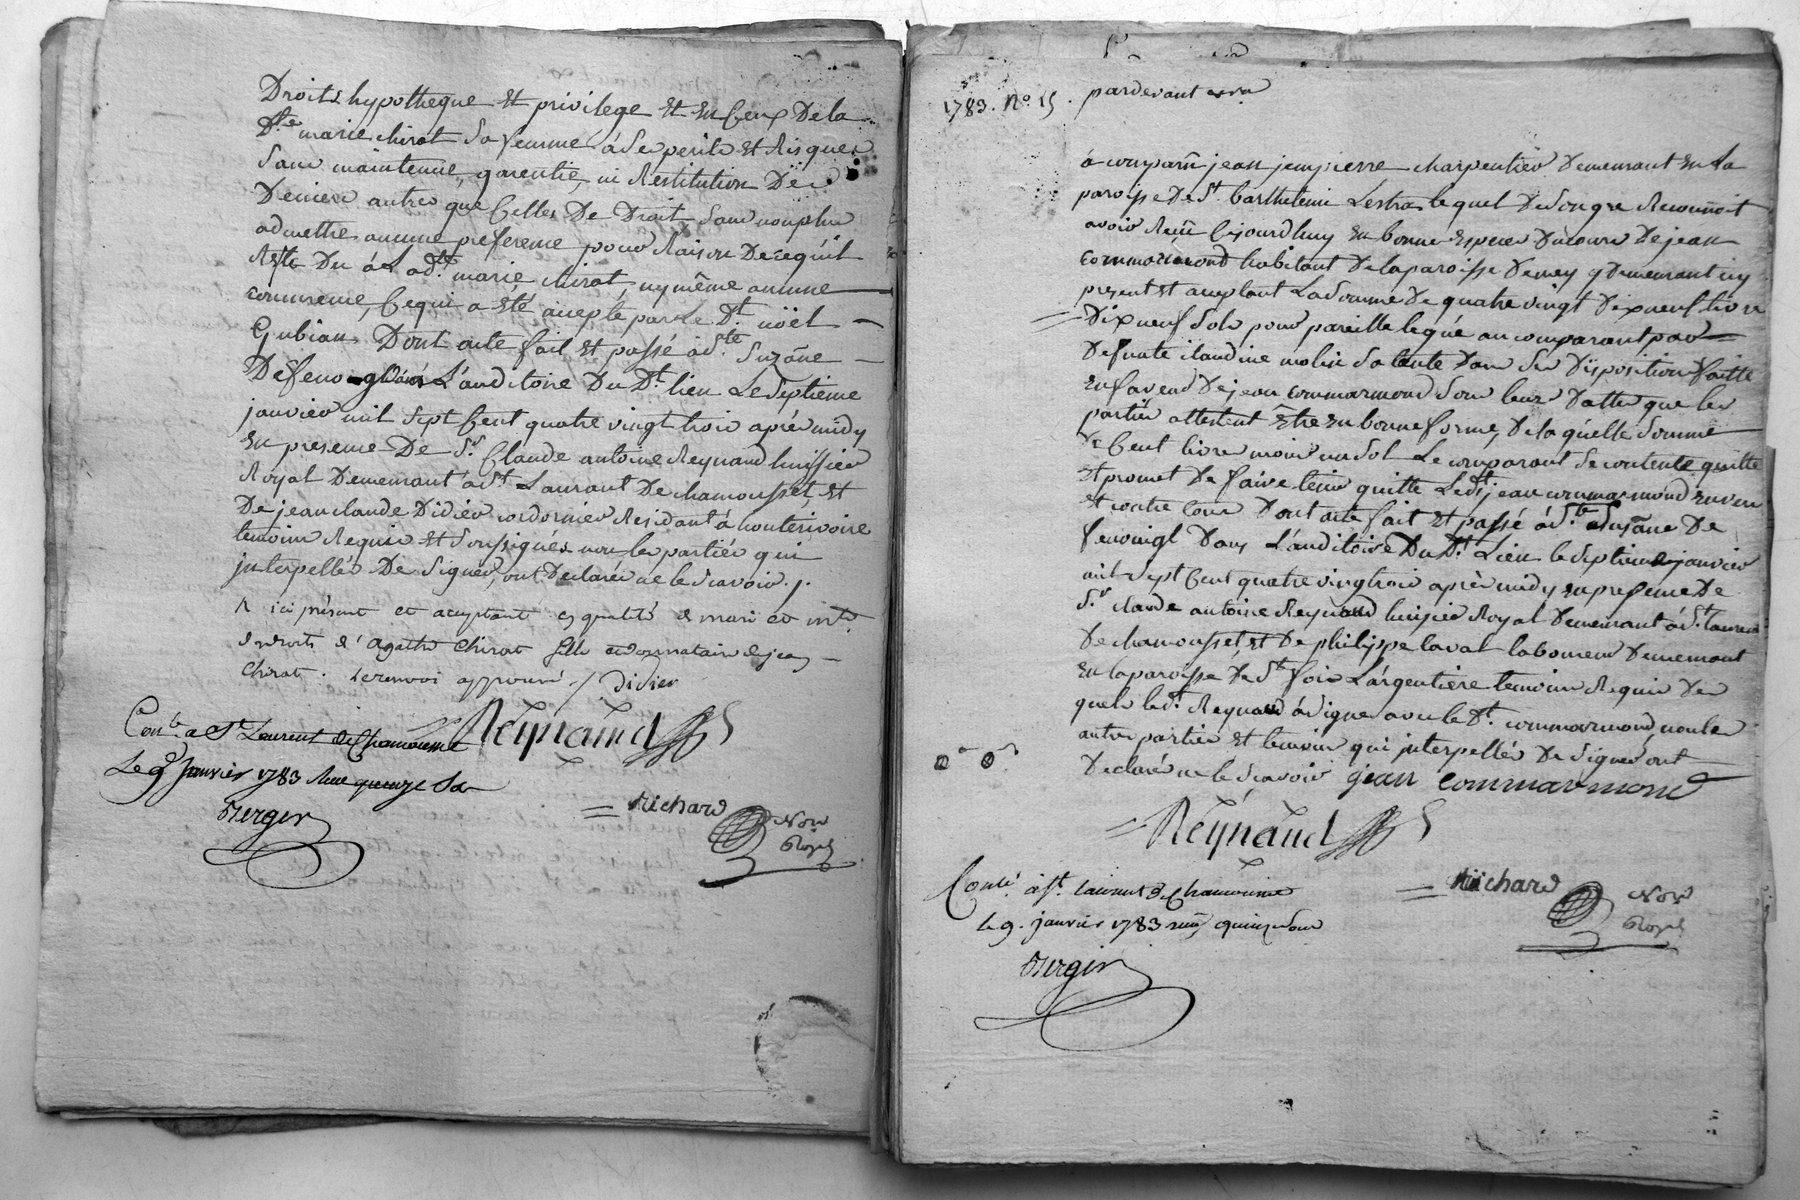 Droits hypotheque et privilege et en ceux de la
Dte marie chirat sa femme à se perils et Risques
sans maintenue, garentie, ni Restitution De
Deniers autres que celles De Droit sans non plus
admettre aucune preference pour Raison De ce qu'il
Reste Du à Lad. marie chirat, ny même aucune
concurrence, ce qui a été accepté par le Dt. noël
Gubian Dont acte fait et passé à Ste. Suzâne
Defeno Dans L'auditoire Du Dt. lieu Le Septieme
janvier mil sept cent quatre vingt trois après midy
en presence De Sr. Claude antoine Reynaud huissier
Royal Demeurant à St Laurant De chamousset, et
De jean claude Didier cordonnier Residant à hauterivoire
temoins Requis et Soussignés non les partiés qui
interpellés De Signer, ont Declarés ne le Sçavoir ./.
ici présent et acceptant en qualité de mari et mtre
des droits d'Agathe Chirat fille et donnataire de jean
Chirat. le renvoi approuvé ./. Didier
Reynaud
Conlé. a St Laurent de Chamousset
Le 9 Janvier 1783 Recu quinze Sols
Berger
Richard
Nore
Royal
1783. No. 15. pardevant
à comparu jean jempierre charpentier Demeurant en La
paroisse De St. barthelemi Lestra lequel De son gre Reconnoit
avoir Reçû cejourd'huy en bonne espece Ducours De jean
commarmond habitant De la paroisse De mey y Demeurant icy
present et acceptant La Somme De quatre vingt Dixneuf livres
Dixneuf Sols pour pareille leguée au comparant par
Defunte claudine molin Sa tante Dans Ses Disposition faitte
en faveur De jean commarmond Sous leurs Dattes que les
partiés attestent être en bonne forme, De laquelle Somme
De Cent livres moins un Sol Le comparant Se contente quitte
et promet De faire tenir quitte Ledt. jean commarmond envers
et contre tous Dont acte fait et passé à Ste Suzâne De
fenoingt Dans L'auditoire Du Dt. Lieu le Septieme janvier
mil Sept Cent quatre vingt trois après midy en presence De
Sr. claude antoine Reynaud huissier Royal Demeurant à St. laurent
De chamousset et De philippe laval laboureur Demeurant
en la paroisse De Ste foix L'argentiere temoins Requis Des
quels le Dt. Reynaud à Signé avec le Dt. commarmond non les
autres partiés et temoins qui interpellés De Signer ont
Declarés ne le Sçavoir jean commarmond
Reynaud
Conlé. à St. Laurent de Chamousset
le 9. janvier 1783 reçu quinze sous
Berger
Richard
Nore
Royal